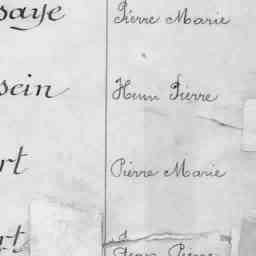 saye Pierre Marie
sein Henri Pierre
rt Pierre Marie
rt Jean Pierre